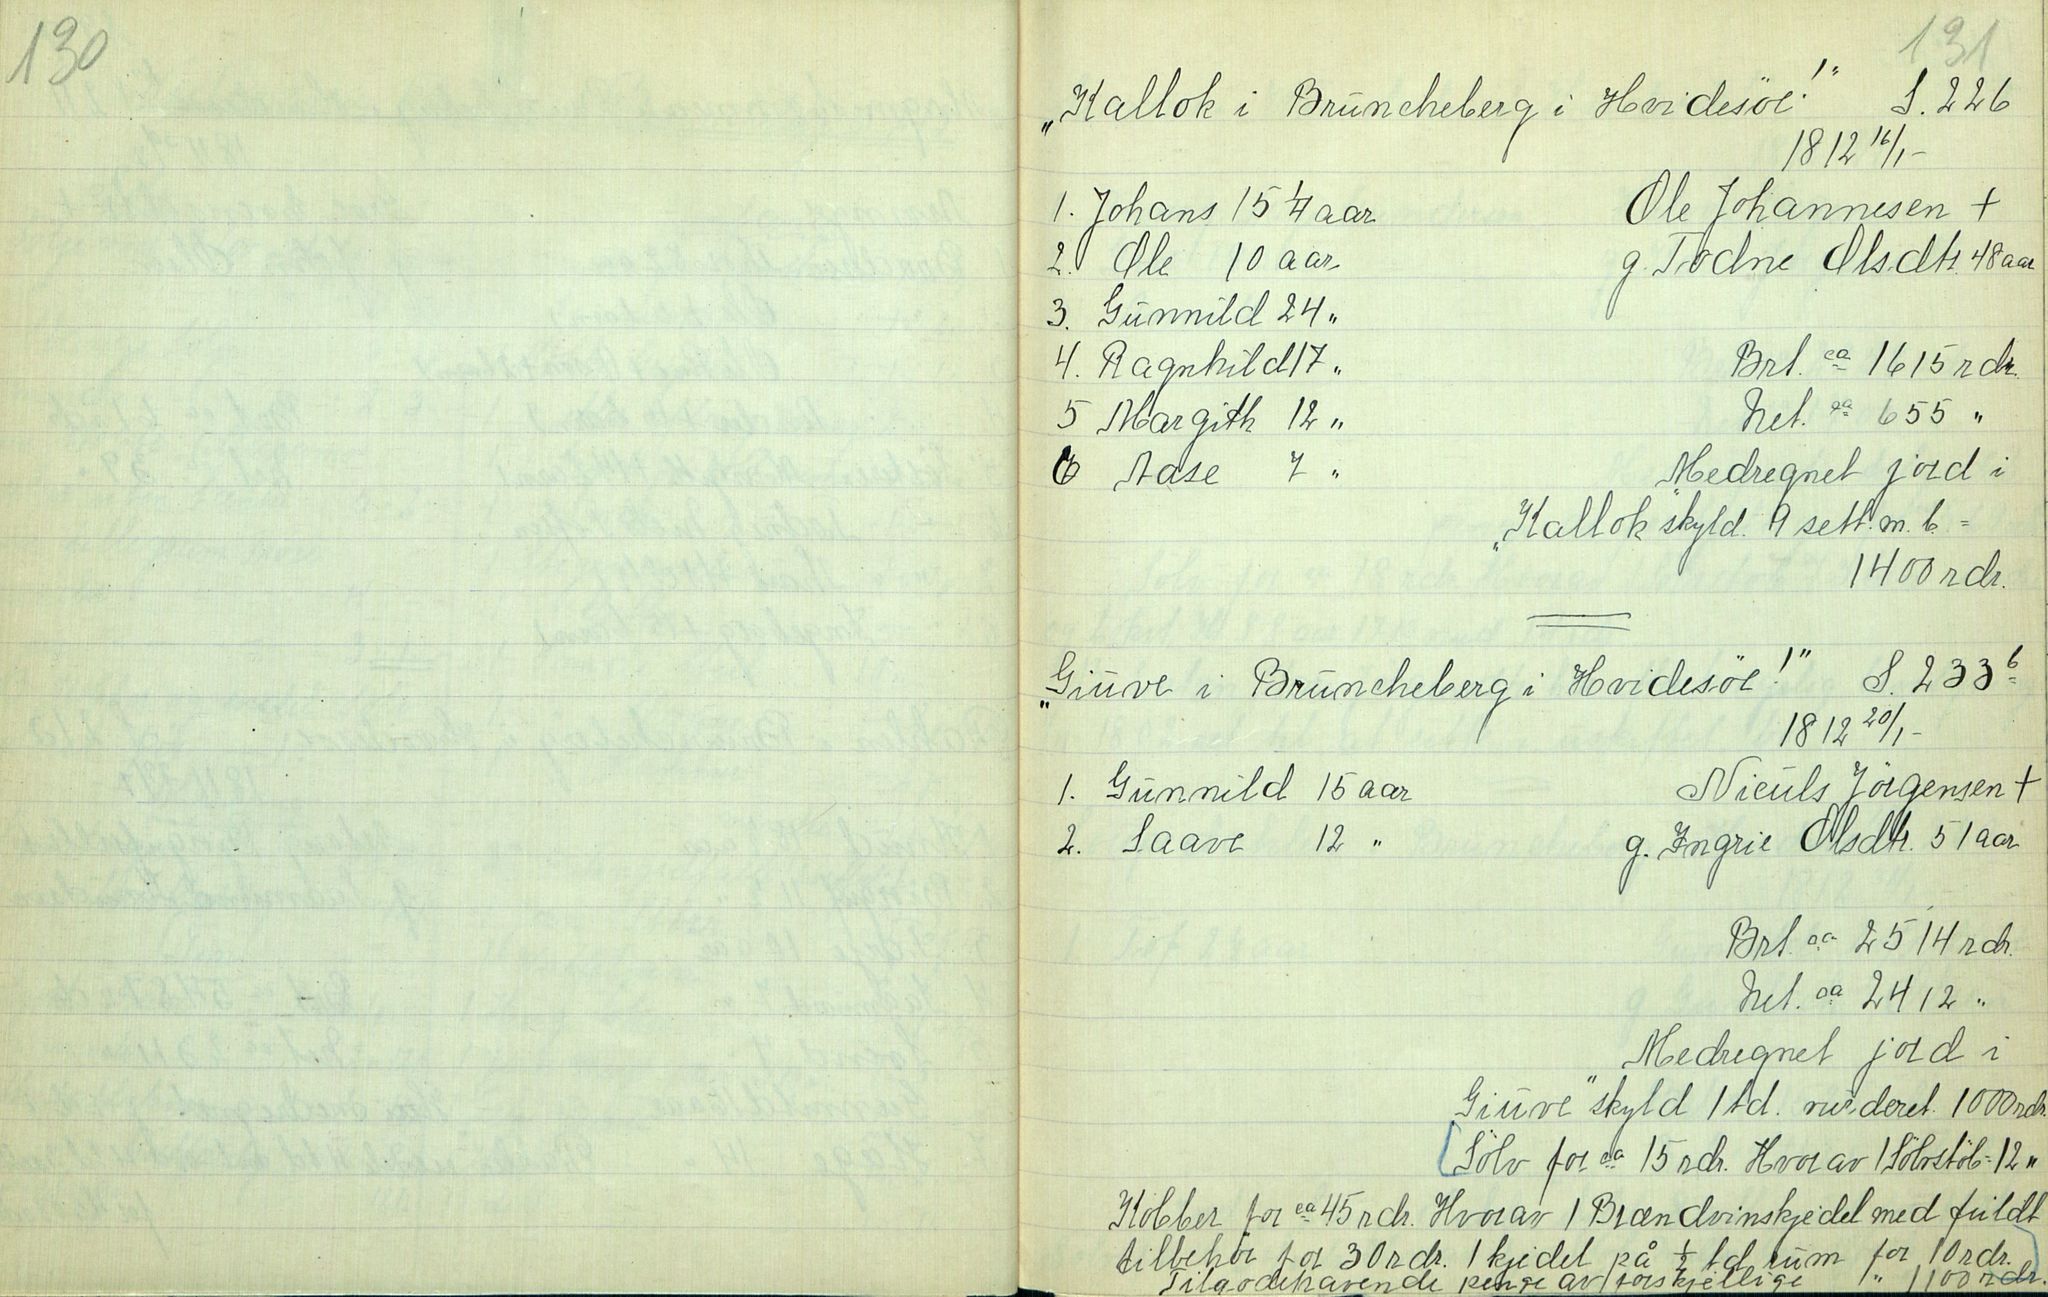 130
131
„Kallok i Bruncheberg i Hvidesöe!" S. 226
1812 16/1-
1. Johans 15 1/4 aar Ole Johannesen +
2. Ole 10 aar g. Todne Olsdtr. 48 aar
3. Gunnild 24 "
4. Ragnhild 17 " Brt. ca 1615 rdr.
5 Margith 12 " Net. ca 655 "
6 Aase 7 " Medregnet jord i
„Kallok" skyld. 9 sett. m. b. =
1400 rdr.
„Giuve i Bruncheberg i Hvidesöe!" S. 233 b
1812 20/1-
1. Gunnild 15 aar Niculs Jörgensen +
2. Saave 12 " g. Ingrie Olsdtr. 51 aar
Brt. ca 2514 rdr.
Net. ca 2412 "
Medregnet jord i
Giuve" skyld 1 td. vurderet 1000 rdr.
Sölv for ca 15 rdr. Hvorav 1 Sölvstöb = 12 "
Kobber for ca 45 rdr. Hvorav 1 Brændvinskjedel med fuldt
tilbehör for 30 rdr. 1 kjedel på 1/2 td rum for 10 rdr.
Tilgodehavende penge av forskjellige " 1100 rdr.